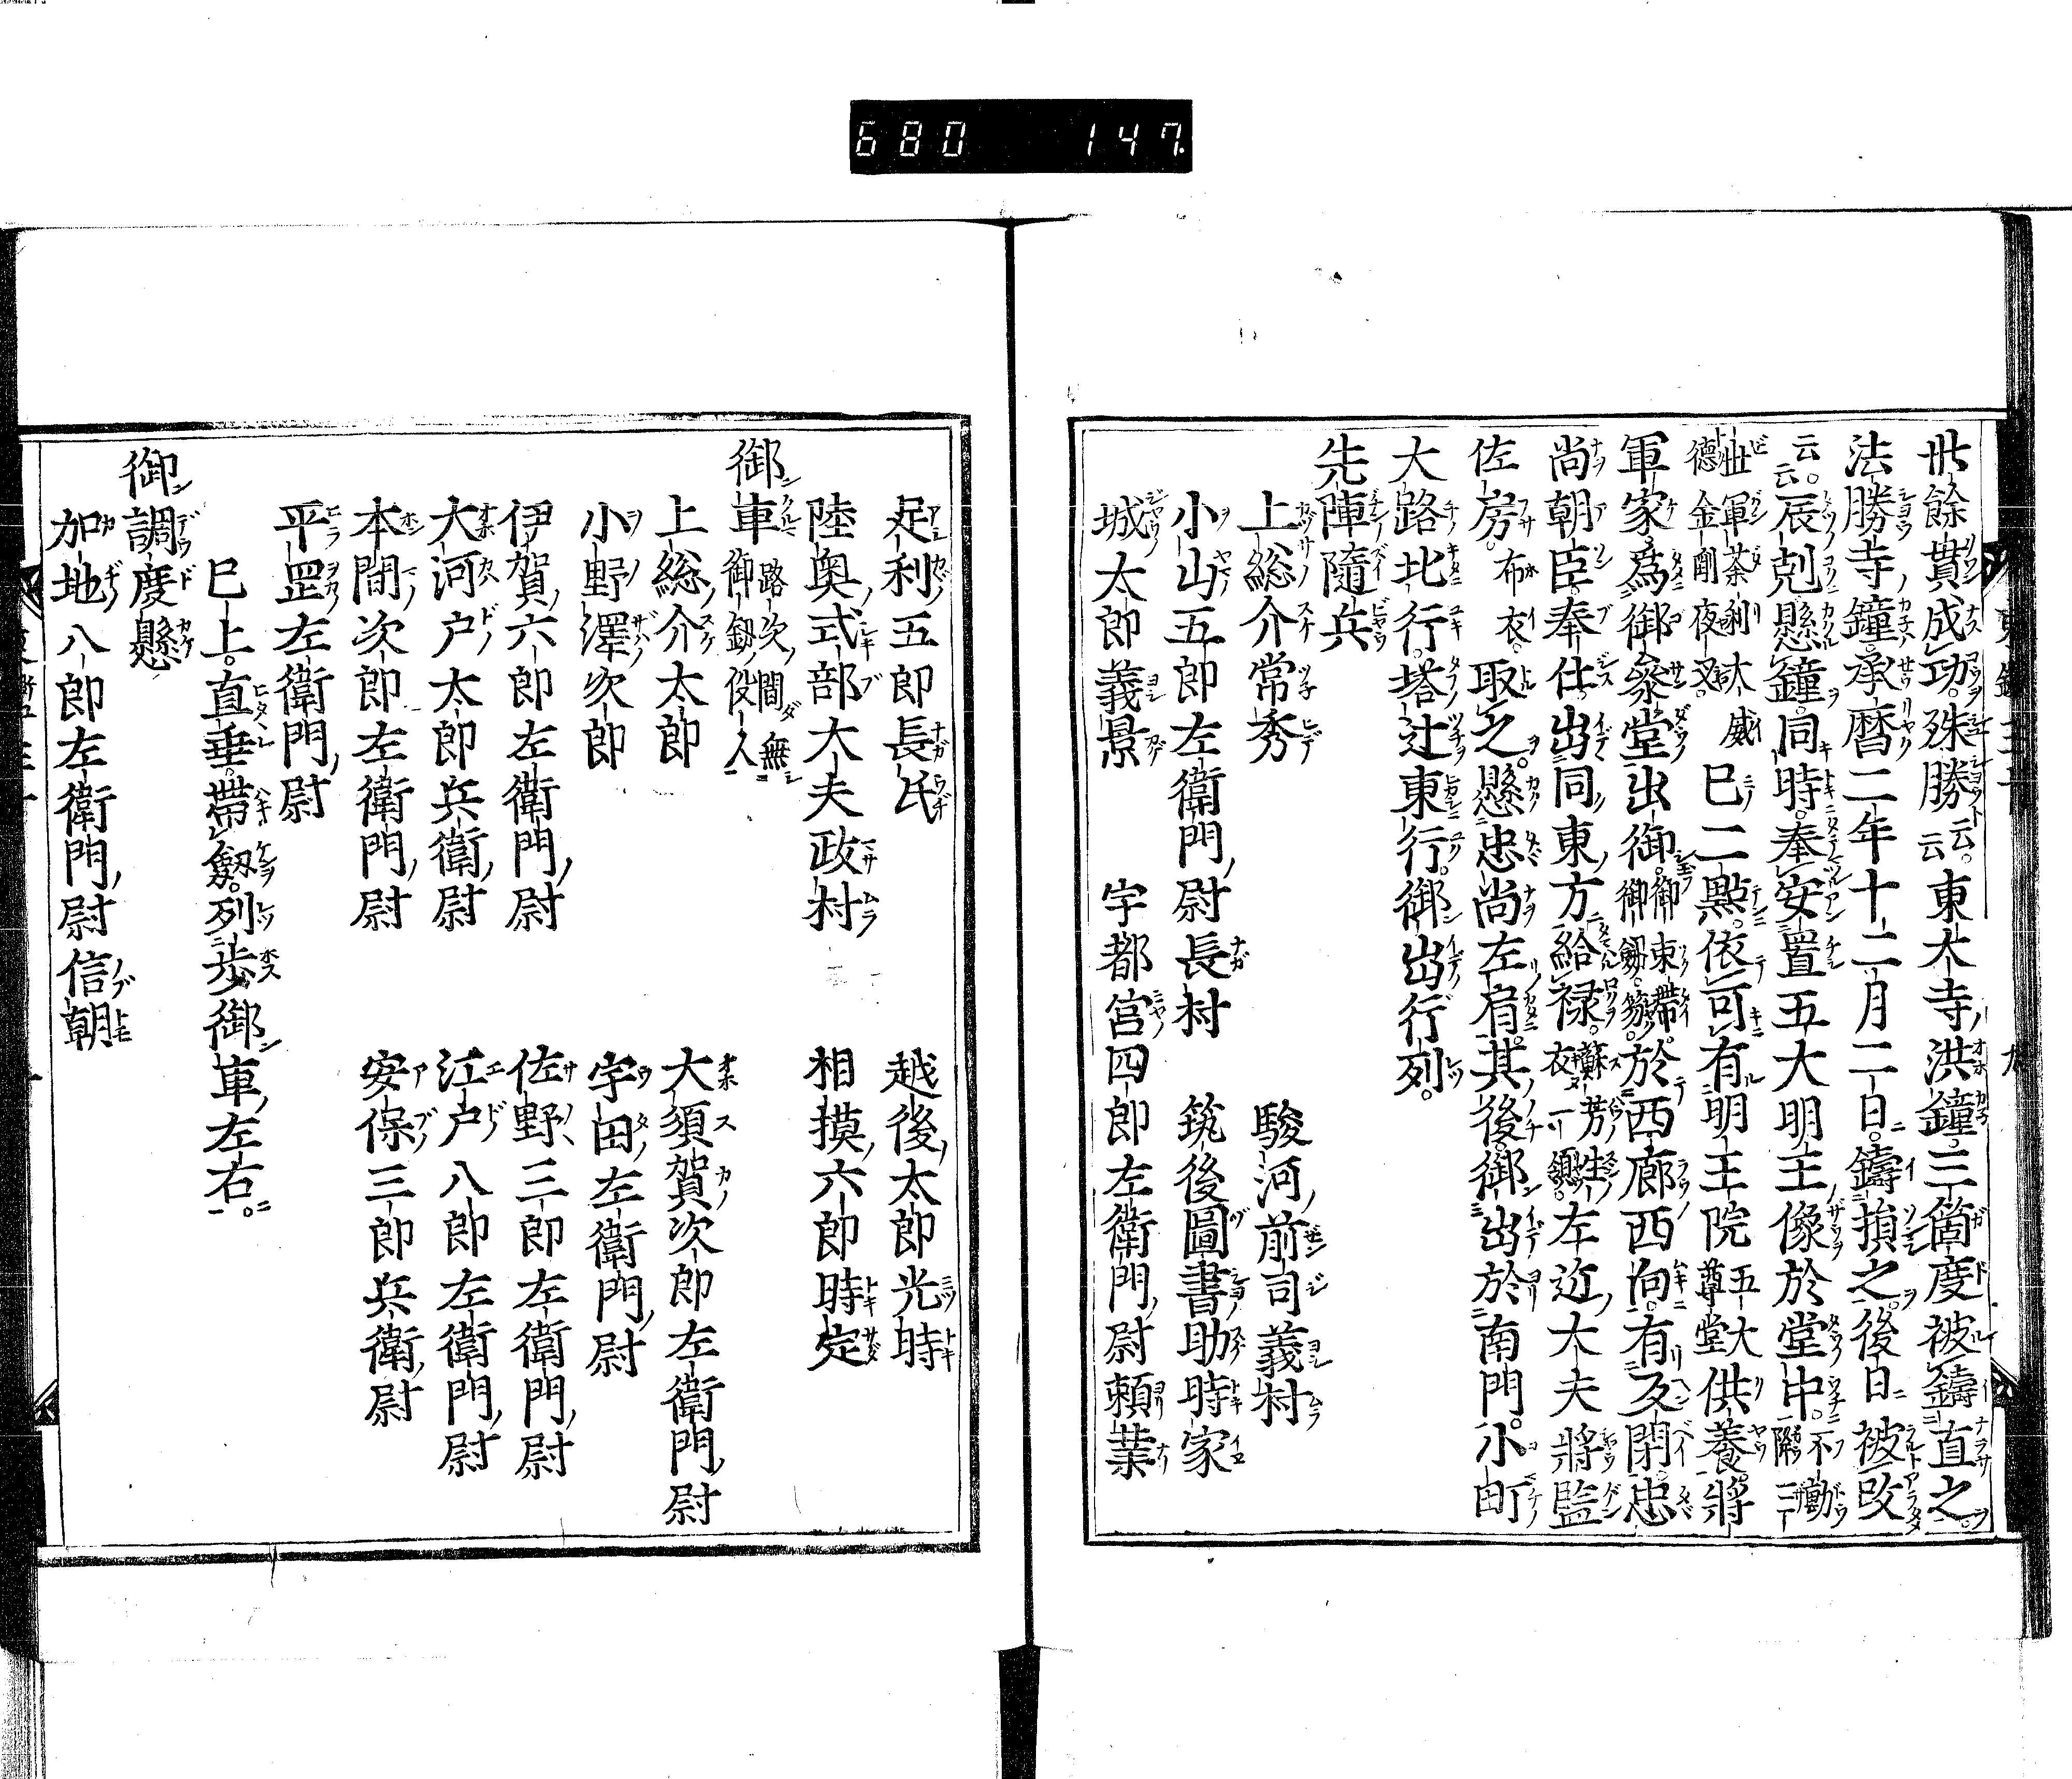 680 147.
卅餘貫成功。殊勝云云。東大寺洪鐘。三箇度被鑄直之。
法勝寺鐘。承暦二年十二月二日。鑄損之。後日被改
云云。辰剋懸鐘。同時。奉安置五大明王像於堂中。不動 降三
世 軍茶利 大威德 金剛夜叉 巳二點。依可有明王院 五大尊堂 供養。將
軍家。爲御參堂出御。御束帶。御劔。笏。於西廊西向。有反閇。忠
尚朝臣。奉仕。出同東方。給禄。蘇芳 生衣一 鰦。左近大夫將監
佐房。布衣。取之。懸忠尚左肩。其後。御出於南門。小町
大路北行。塔辻東行。御出行列。
先陣隨兵
上総介常秀 駿河前司義村
小山五郎左衛門尉長村 筑後圖書助時家
城太郎義景 宇都宮四郎左衛門尉頼業
足利五郎長氏 越後太郎光時
陸奥式部大夫政村 相摸六郎時定
御車 路次間無御劔役人
上総介太郎 大須賀次郎左衛門尉
小野澤次郎 宇田左衛門尉
伊賀六郎左衛門尉 佐野三郎左衛門尉
大河戸太郎兵衛尉 江戸八郎左衛門尉
本間次郎左衛門尉 安保三郎兵衛尉
平岡左衛門尉
巳上。直垂。帶劔。列歩御車左右。
御調度懸
加地八郎左衛門尉信朝